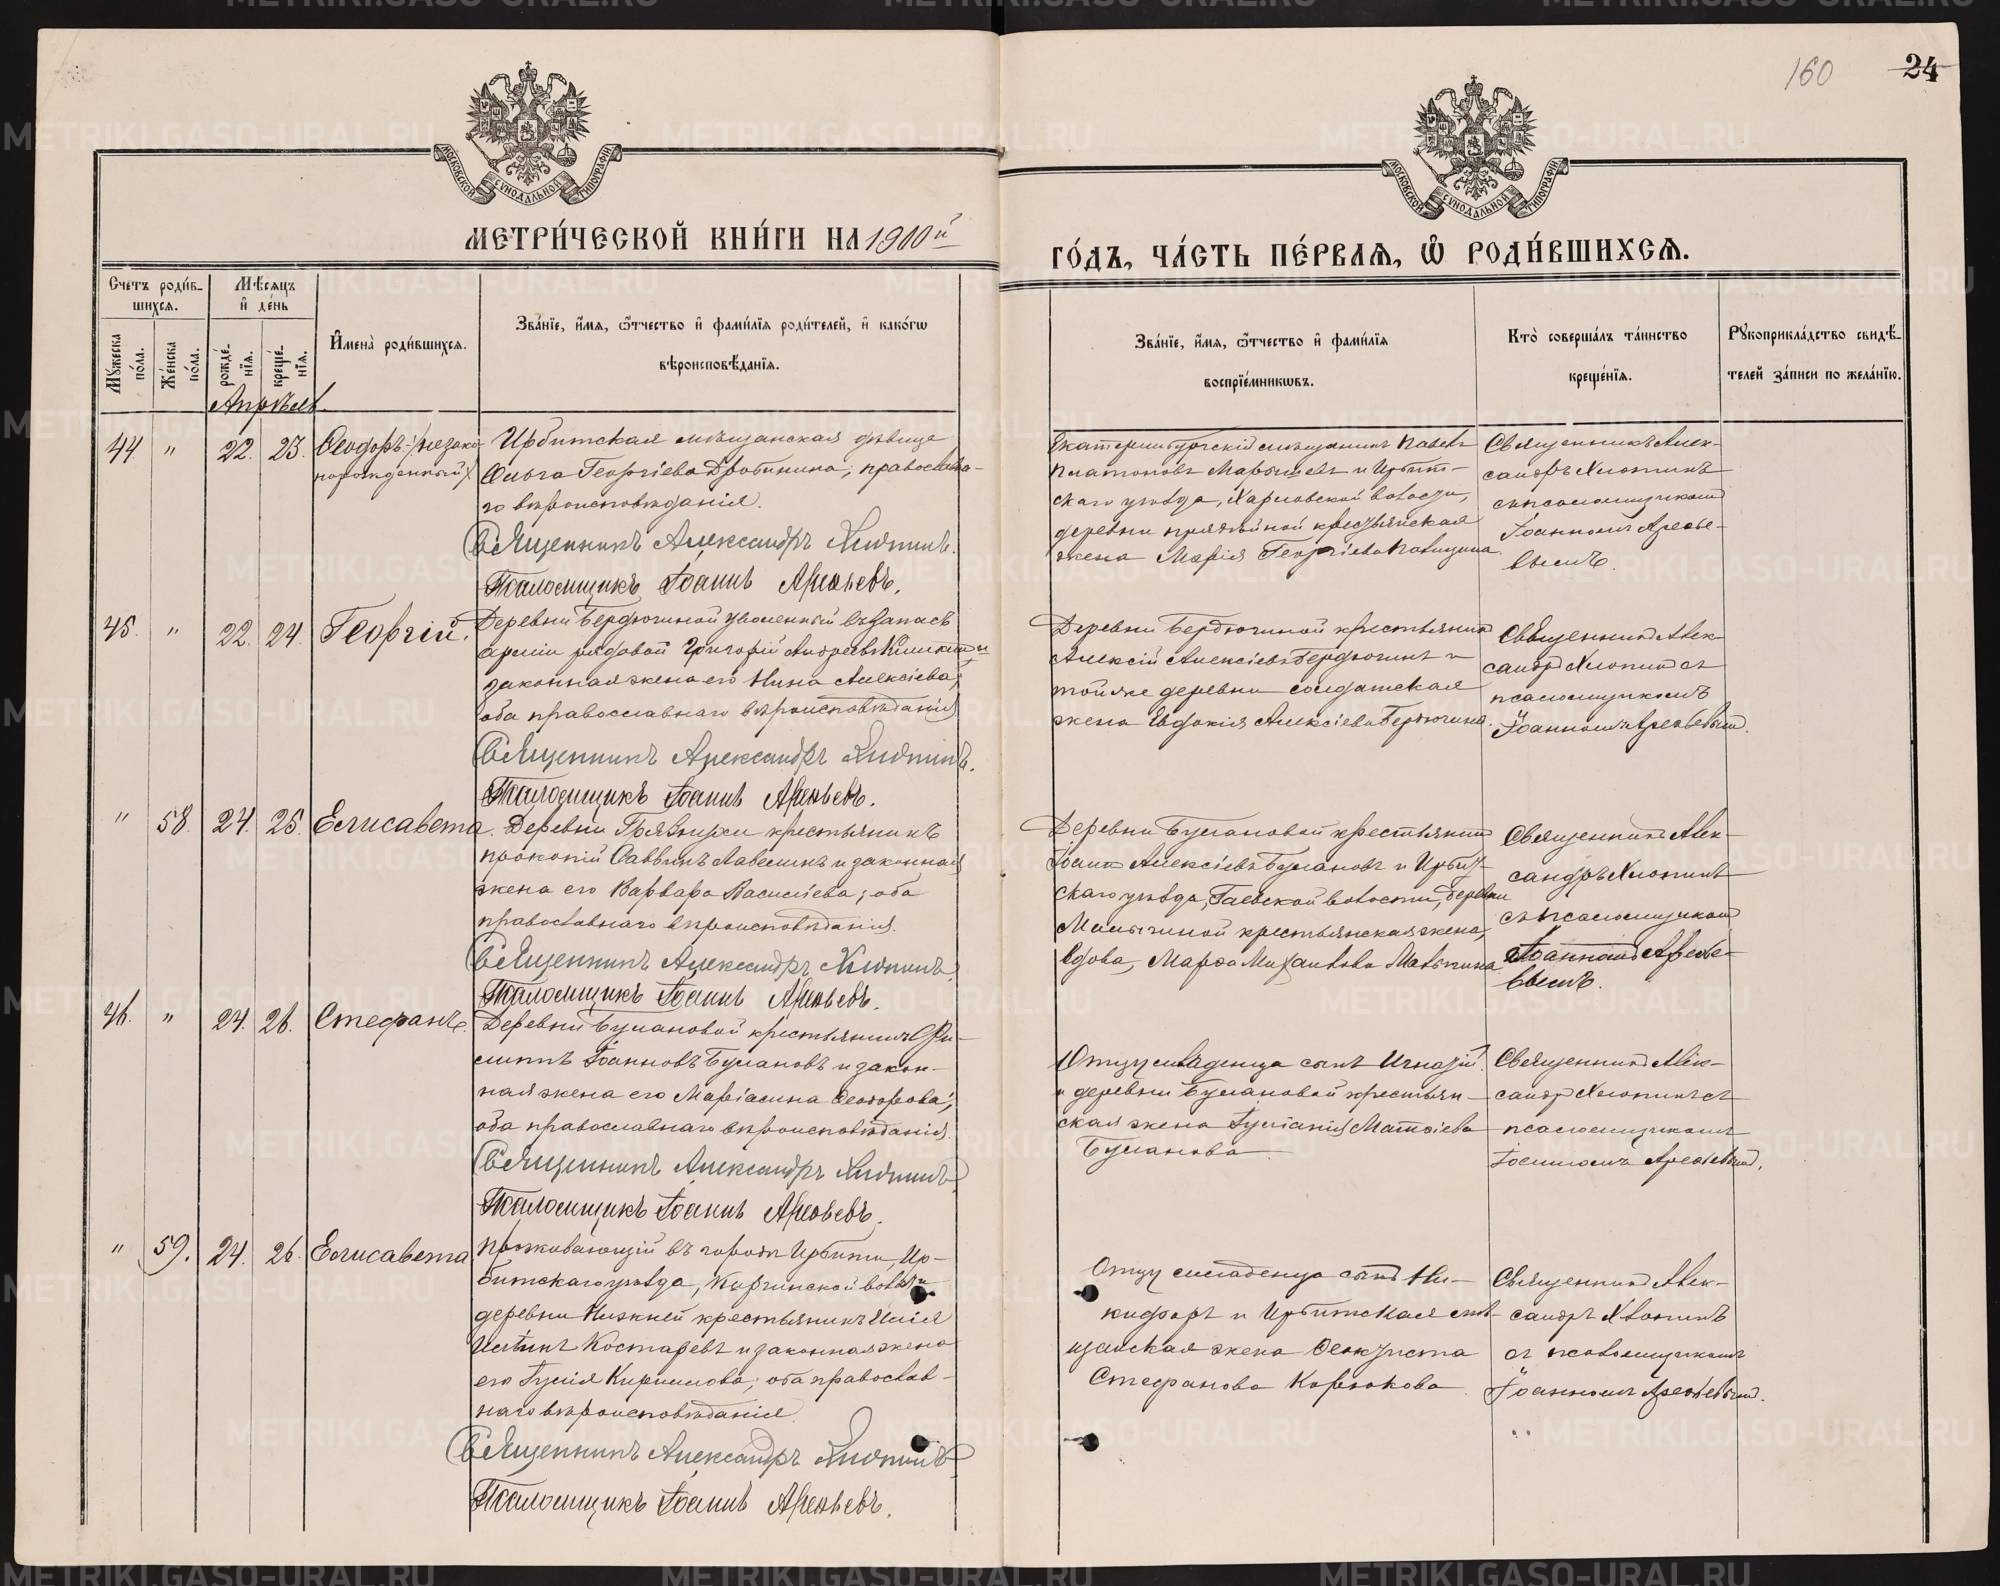 160 24
МОСКОВСКОЙ СѴНОДАЛЬНОЙ ТИПОГРАФІИ
МОСКОВСКОЙ СѴНОДАЛЬНОЙ ТИПОГРАФІИ
МЕТРИ́ЧЕСКОЙ КНИ́ГИ НА 1900й
ГО́ДЪ, ЧА́СТЬ ПЕ́РВАЯ, Ѡ РОДИ́ВШИХСЯ.
Счетъ роди́в-
шихся.
Мѣсяцъ
и де́нь
Му́жеска по́ла.
Же́нска по́ла.
рожде́-
нїя.
креще́-
нїя.
Имена̀ роди́вшихся.
Зва́нїе, и́мя, ѻ҆́тчество и фами́лїя роди́телей, и како́гѡ
вѣроисповѣ́данїя.
Зва́нїе, и́мя, ѻ҆́тчество и фами́лїя
воспрїе́мникѡвъ.
Кто̀ соверша́лъ та́инство
креще́нїя.
Рꙋкоприкла́дство свидѣ́-
телей за́писи по жела́нїю.
Апрѣль
44 " 22. 23. Ѳеодоръ (незако-
норожденный)
Ирбитская мѣщанская дѣвица
Ольга Георгіева Дробинина, православна-
го вѣроисповѣданія.
Священникъ Александръ Хлопинъ.
Псаломщикъ Іоаннъ Арефьевъ.
Екатеринбургскій мѣщанинъ Павелъ
Платоновъ и Ирбит-
скаго уѣзда, Харловской волости,
деревни крестьянская
жена Марія Георгіева
Священникъ Алек-
сандръ Хлопинъ
съ псаломщикомъ
Іоанномъ Арефье-
вымъ.
45. " 22. 24. Георгій.
Деревни Бердюгиной уволенный въ запасъ
арміи рядовой Григорій Андреевъ и
законная жена его Нина Алексіева,
оба православнаго вѣроисповѣданія
Священникъ Александръ Хлопинъ.
Псаломщикъ Іоаннъ Арефьевъ.
Деревни Бердюгиной крестьянинъ
Алексій Алексіевъ Бердюгинъ и
той же деревни солдатская
жена Евдокія Алексіева Бердюгина.
Священникъ Алек-
сандръ Хлопинъ съ
псаломщикомъ
Іоанномъ Арефьевымъ.
" 58. 24. 25. Елисавета.
Деревни крестьянинъ
Прокопій Саввинъ и законная
жена его Варвара Василіева; оба
православнаго вѣроисповѣданія.
Священникъ Александръ Хлопинъ
Псаломщикъ Іоаннъ Арефьевъ.
Деревни Булановой крестьянинъ
Іоаннъ Алексіевъ Булановъ и Ирбит-
скаго уѣзда, Гаевской волости, деревни
Мамычиной крестьянская жена,
вдова, Марѳа Михаилова
Священникъ Алек-
сандръ Хлопинъ
съ псаломщикомъ
Іоанномъ Арефье-
вымъ.
46. " 24. 26. Стефанъ.
Деревни Булановой крестьянинъ Фи-
липпъ Іоанновъ Булановъ и закон-
ная жена его Маріамна Ѳеодорова;
оба православнаго вѣроисповѣданія.
Священникъ Александръ Хлопинъ
Псаломщикъ Іоаннъ Арефьевъ.
Отцу младенца сынъ Игнатій
и деревни Булановой крестьян-
ская жена Іуліанія Матѳіева
Буланова.
Священникъ Алек-
сандръ Хлопинъ съ
псаломщикомъ
Іоанномъ Арефьевымъ.
" 59. 24. 26. Елисавета.
Проживающій въ городѣ Ирбити, Ир-
битскаго уѣзда, Киргинской волости
деревни Нижней крестьянинъ Илія
Костаревъ и законная жена
его Іулія Кириллова; оба православ-
наго вѣроисповѣданія.
Священникъ Александръ Хлопинъ
Псаломщикъ Іоаннъ Арефьевъ.
Отцу младенца сынъ Ни-
кифоръ и Ирбитская мѣ-
щанская жена Ѳеоктиста
Стефанова Корюкова.
Священникъ Алек-
сандръ Хлопинъ
съ псаломщикомъ
Іоанномъ Арефьевымъ.
METRIKI.GASO-URAL.RU